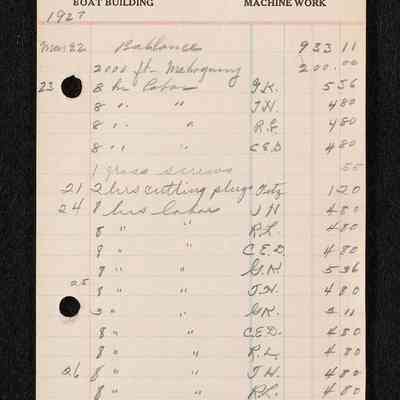 BOAT BUILDING MACHINE WORK
1927
Mar 22 Ballance 933 11
2000 ft. Mahogany 200.00
23 8 hr labor G.K. 5 36
8 " " J.H. 4 80
8 " " R.L. 4 80
8 " " C.E.D 4 80
1 gross screws 55
21 2 hrs cutting plugs 1 20
24 8 hrs labor J H 4 80
8 " " R.L. 4 80
8 " " C.E.D. 4 80
8 " " G.K 5 36
25 8 " " J.H. 4 80
3 " " GK. 2 11
8 " " C.E.D. 4 80
8 " " R.L. 4 80
26 8 " " J.H. 4 80
8 " " R.L. 4 80